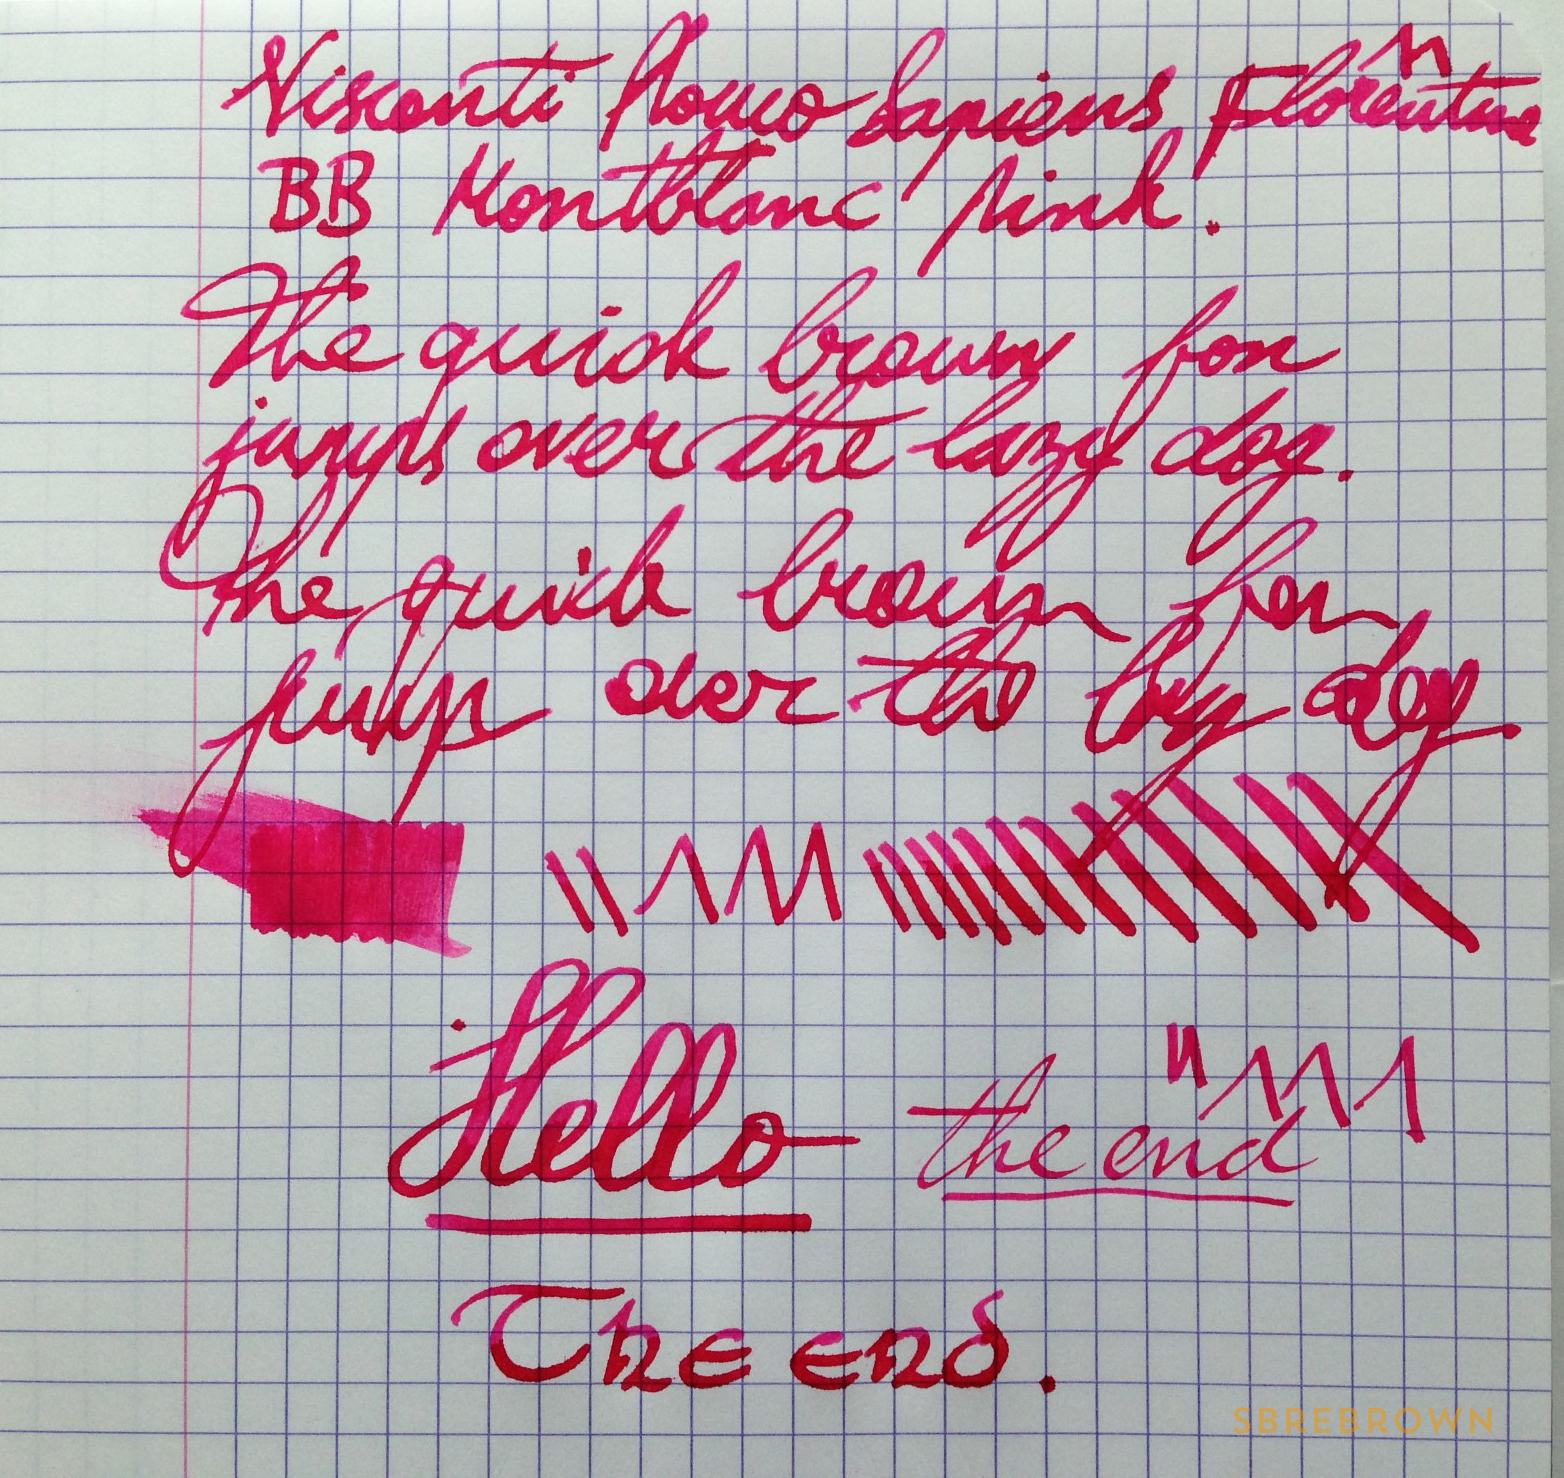 Visconti Homo Sapiens Florentine
BB Montblanc Pink.
The quick brown fox
jumps over the lazy dog.
The quick brown fox
jumps over the lazy dog.
Hello
the end
The end.
SBREBROWN